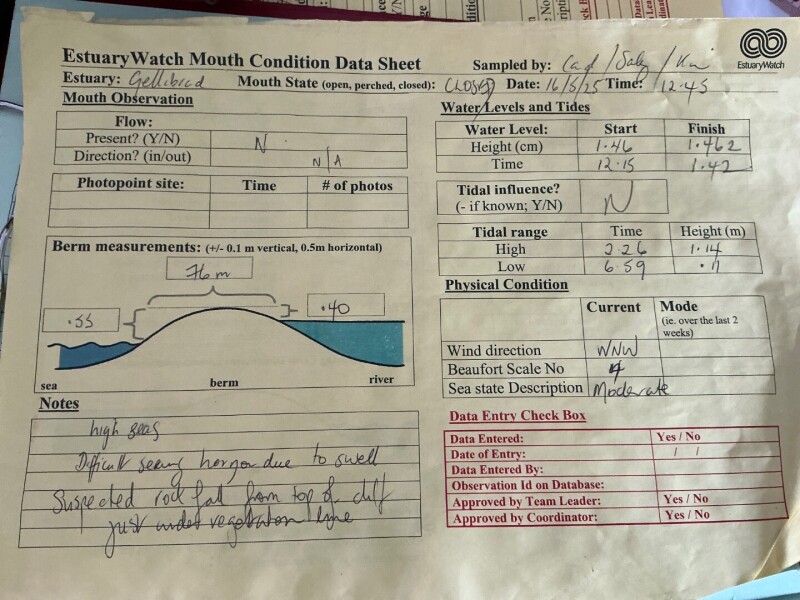 EstuaryWatch Mouth Condition Data Sheet
Sampled by: / /
EstuaryWatch
Estuary: Gellibrad Mouth State (open, perched, closed): CLOSED Date: 16/5/25 Time: 12.45
Mouth Observation
Flow:
Present? (Y/N) N
Direction? (in/out) N/A
Photopoint site: Time # of photos
Berm measurements: (+/- 0.1 m vertical, 0.5m horizontal)
76 m
.40
sea berm river
Notes
high seas
Difficult seeing horizon due to swell
Suspected rock fall from top of cliff
just under vegetation line
Water Levels and Tides
Water Level: Start Finish
Height (cm) 1.46 1.462
Time 12.15 1.42
Tidal influence?
(- if known; Y/N) N
Tidal range Time Height (m)
High 2.26 1.14
Low 6.59 .11
Physical Condition
Current Mode
(ie. over the last 2
weeks)
Wind direction WNW
Beaufort Scale No 4
Sea state Description Moderate
Data Entry Check Box
Data Entered: Yes / No
Date of Entry: / /
Data Entered By:
Observation Id on Database:
Approved by Team Leader: Yes / No
Approved by Coordinator: Yes / No